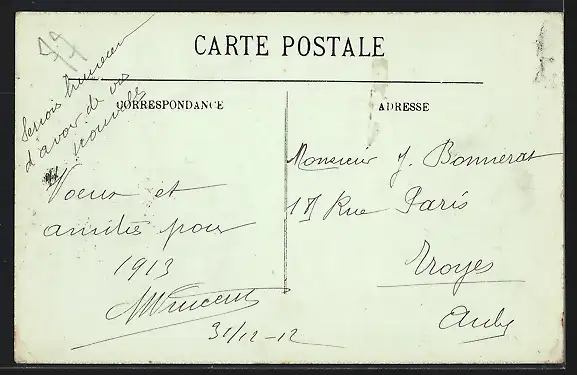 CARTE POSTALE
CORRESPONDANCE
ADRESSE
Serions heureux
d'avoir de vos
nouvelles
Voeux et
amitiés pour
1913
Vincent
31/12-12
Monsieur J. Bonnerat
17 Rue Paris
Troyes
Aube